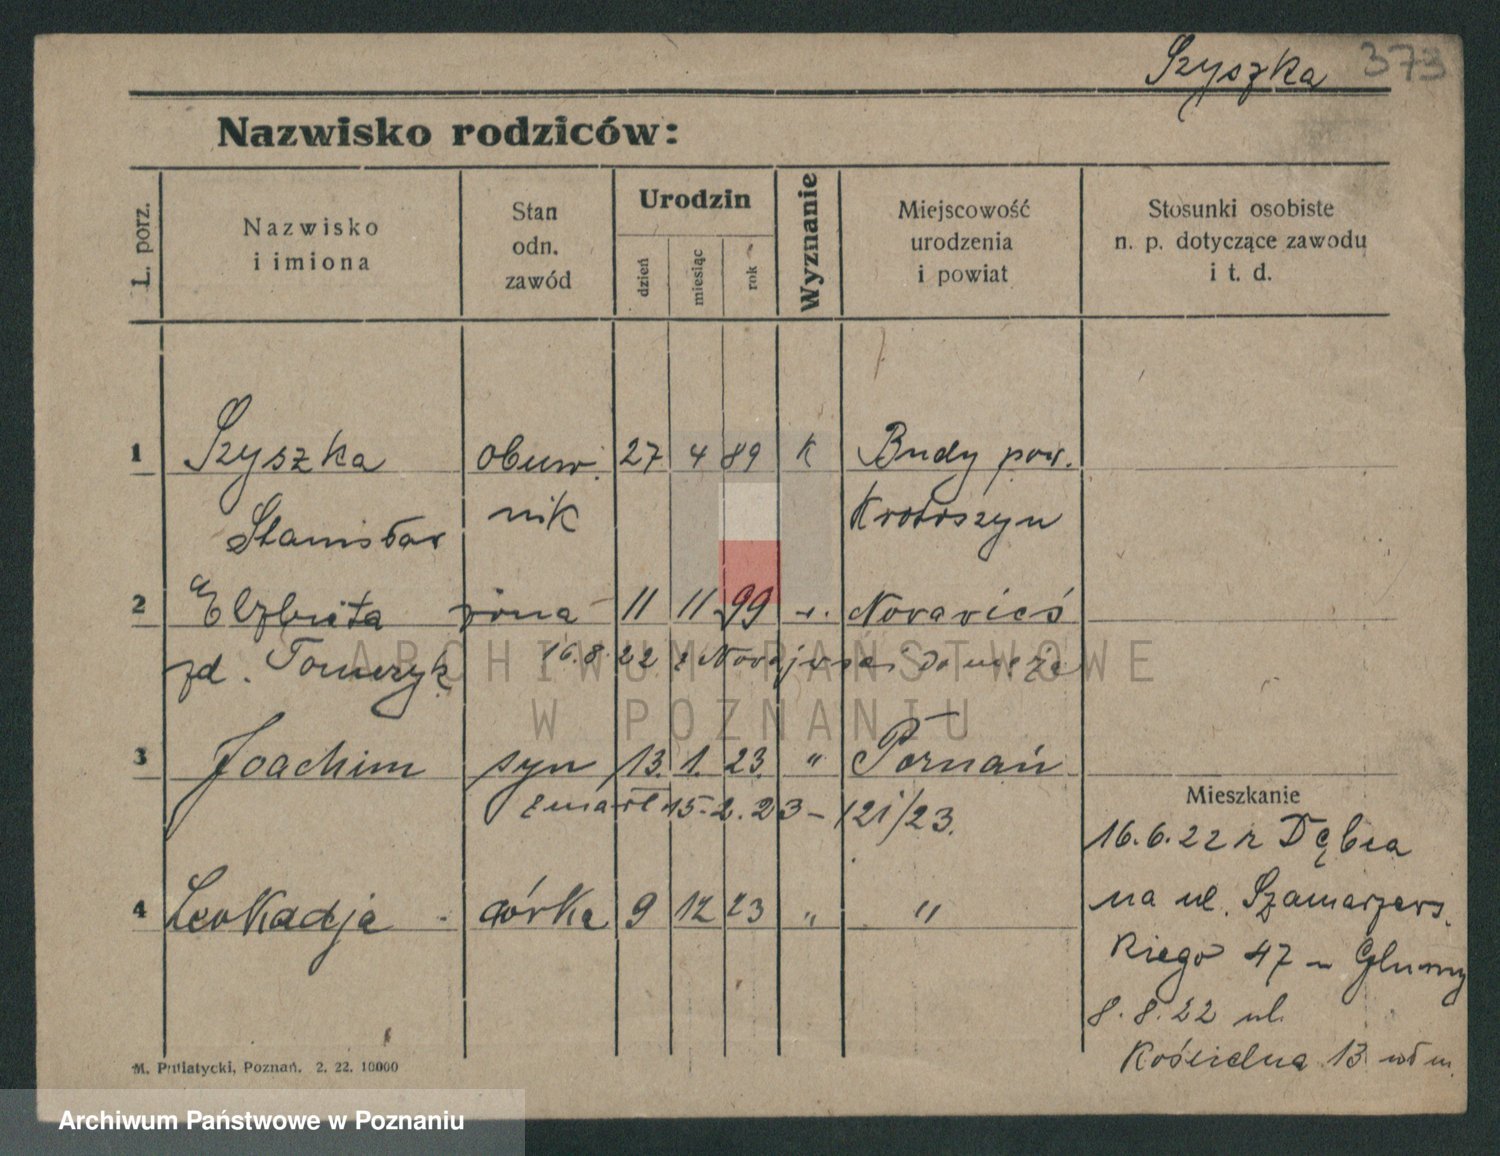 Szyszka 373
Nazwisko rodziców:
L. porz.
Nazwisko
i imiona
Stan
odn.
zawód
Urodzin
dzień
miesiąc
rok
Wyznanie
Miejscowość
urodzenia
i powiat
Stosunki osobiste
n. p. dotyczące zawodu
i t. d.
1 Szyszka obuw. 27 4 89 K Budy pow.
Stanisław nik Krotoszyn
2 Elżbieta żona 11 11 99 Nowawieś
zd. Tomczyk 16.8.22 z do męża
3 Joachim syn 13. 1. 23. " Poznań
zmarł 15.2.23 – 121/23.
4 Leokadja córka 9 12 23 " "
Mieszkanie
16.6.22 z Dębca
na ul. Szamarzews.
kiego 47
8.8.22 ul.
Kościelna 13
M. Putiatycki, Poznań. 2. 22. 10000
ARCHIWUM PAŃSTWOWE
W POZNANIU
Archiwum Państwowe w Poznaniu